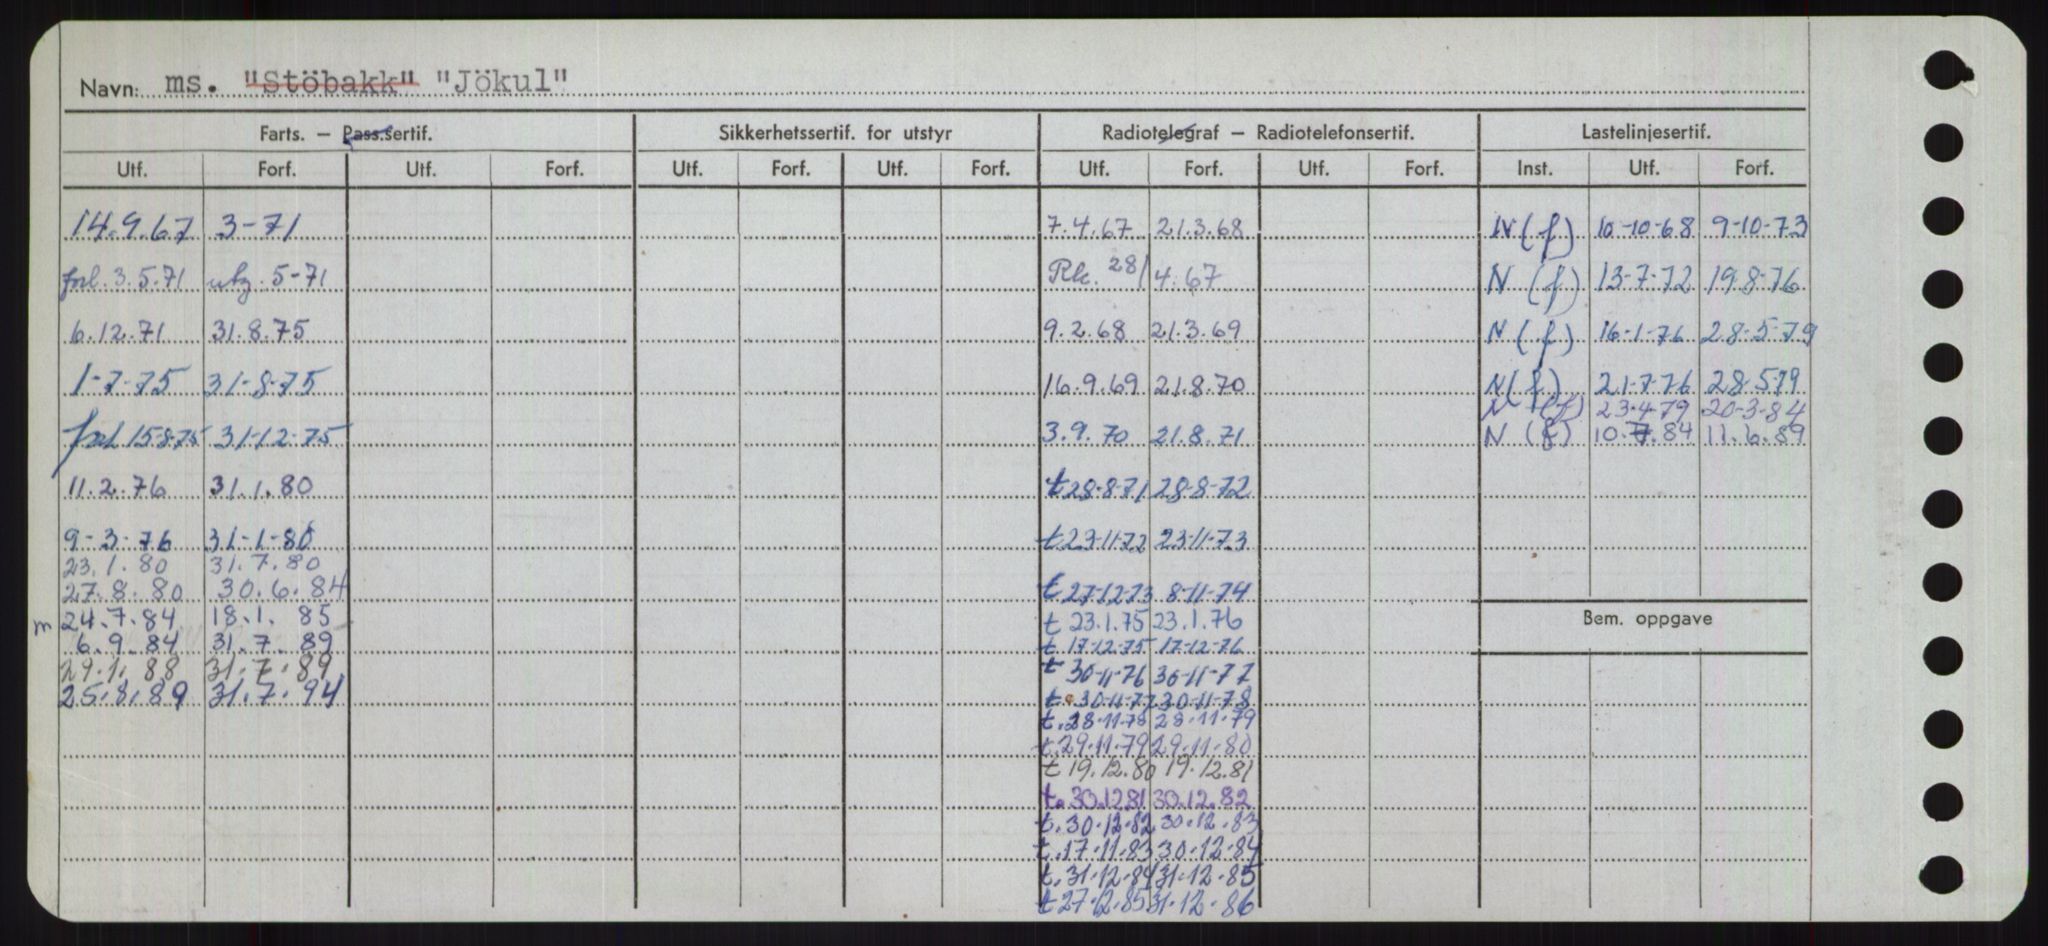 Navn: ms. "Stöbakk" "Jökul"
Farts. — Pass.sertif. Sikkerhetssertif. for utstyr Radiotelegraf — Radiotelefonsertif. Lastelinjesertif.
Utf. Forf. Utf. Forf. Utf. Forf. Utf. Forf. Utf. Forf. Utf. Forf. Inst. Utf. Forf.
14.9.67 3-71 7.4.67 21.3.68 N (f) 10-10-68 9-10-73
forl. 3.5.71 utg. 5-71 Rk. 28/4.67 N (f) 13-7-72 19.8-76
6.12.71 31.8.75 9.2.68 21.3.69 N (f) 16-1-76 28-5-79
1-7-75 31-8-75 16.9.69 21.8.70 N (f) 21-7-76 28.5.79
N (f) 23-4-79 20-3-84
forl 15-8-75 31-12-75 3.9.70 21.8.71 N (f) 10.7.84 11.6.89
11.2.76 31.1.80 t 28-8-71 28-8-72
9-3-76 31-1-80 t 23-11-72 23-11-73
23.1.80 31.7.80
27.8.80 30.6.84 t 27-12-73 8-11-74
m 24.7.84 18.1.85 t 23.1.75 23.1.76 Bem. oppgave
6.9.84 31.7.89 t 17-12-75 17-12-76
29.1.88 31.7.89 t 30-11-76 30-11-77
25.8.89 31.7.94 t. 30-11-77 30-11-78
t. 28-11-78 28.11.79
t. 29.11.79 29.11.80
t 19.12.80 19.12.81
t. 30.12.81 30.12.82
t. 30.12.82 30.12.83
t. 17.11.83 30.12.84
t. 31.12.84 31.12.85
t 27.12.85 31.12.86